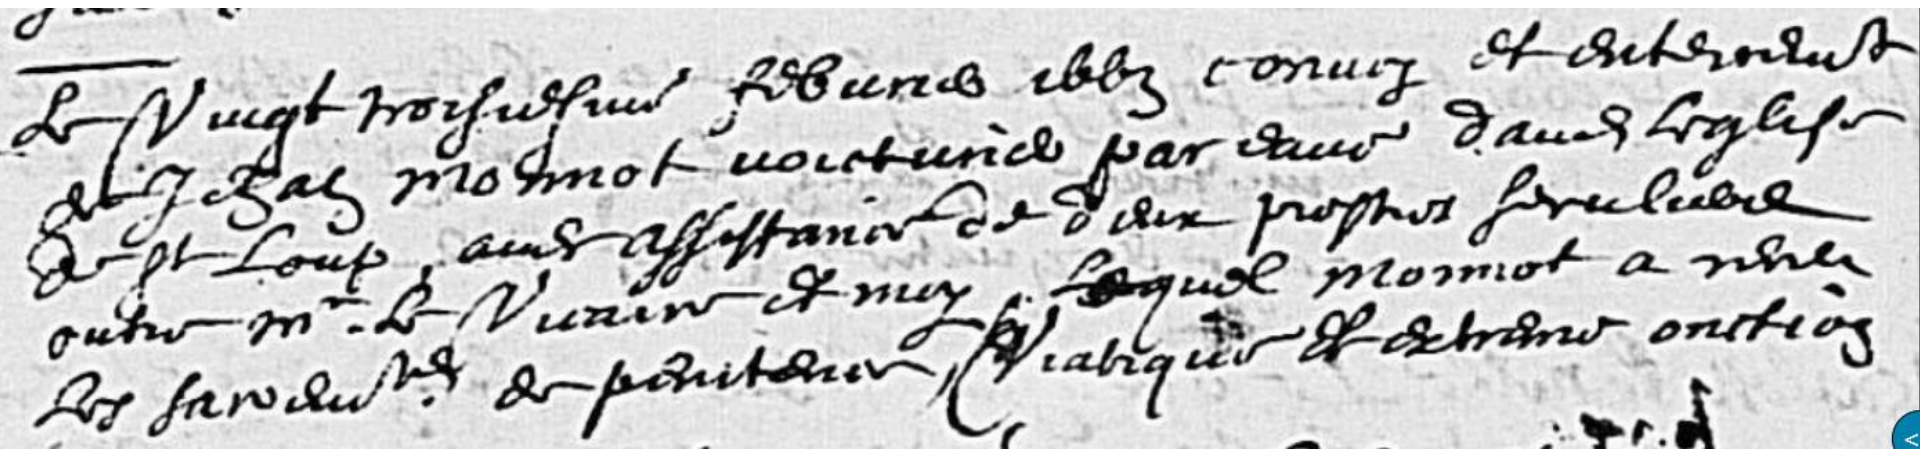 Le Vingt troisiesme febvrier 1667 convoy et enterremt
de Jehan Monnot voicturier par davant l'eglise
de st Loup, avec assistance de deux prestres seculiers
outre mr. Le Vicaire et moy. Lequel Monnot a receu
Les sacremts. de penitence, Viatique et extreme onction